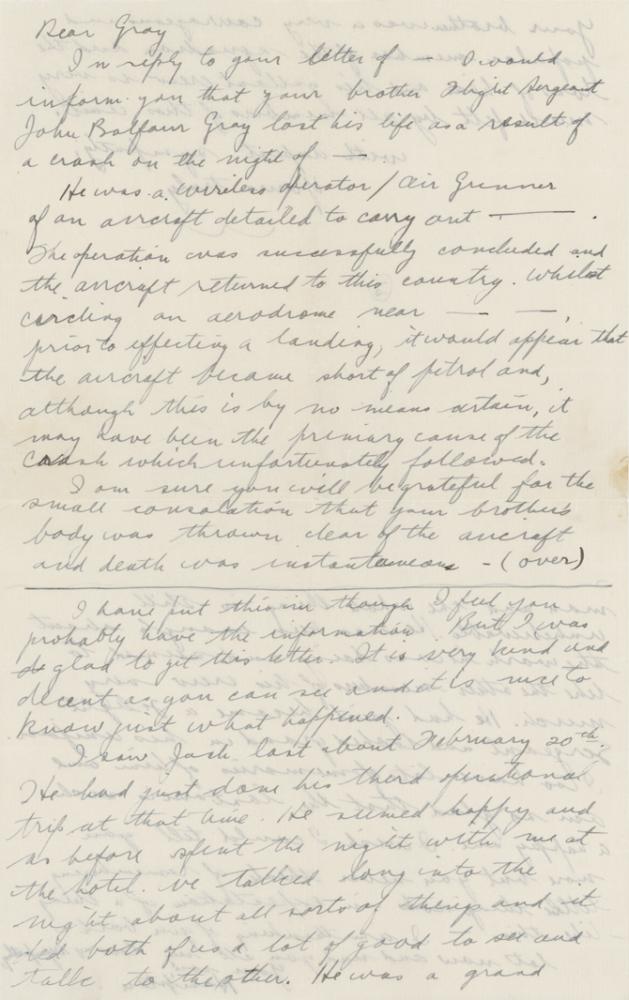 Dear Gray
In reply to your letter of — I would
inform you that your brother Flight Sergeant
John Balfour Gray lost his life as a result of
a crash on the night of —.
He was a wireless operator / Air Gunner
of an aircraft detailed to carry out — .
The operation was successfully concluded and
the aircraft returned to this country. Whilst
circling an aerodrome near — —,
prior to effecting a landing, it would appear that
the aircraft became short of petrol and,
although this is by no means certain, it
may have been the primary cause of the
crash which unfortunately followed.
I am sure you will be grateful for the
small consolation that your brother's
body was thrown clear of the aircraft
and death was instantaneous - (over)
I have put this in though I feel you
probably have the information. But I was
so glad to get this letter. It is very kind and
decent as you can see and it is nice to
know just what happened.
I saw Jack last about February 20th.
He had just done his third operational
trip at that time. He seemed happy and
as before spent the night with me at
the hotel. We talked long into the
night about all sorts of things and it
did both of us a lot of good to see and
talk to the other. He was a grand